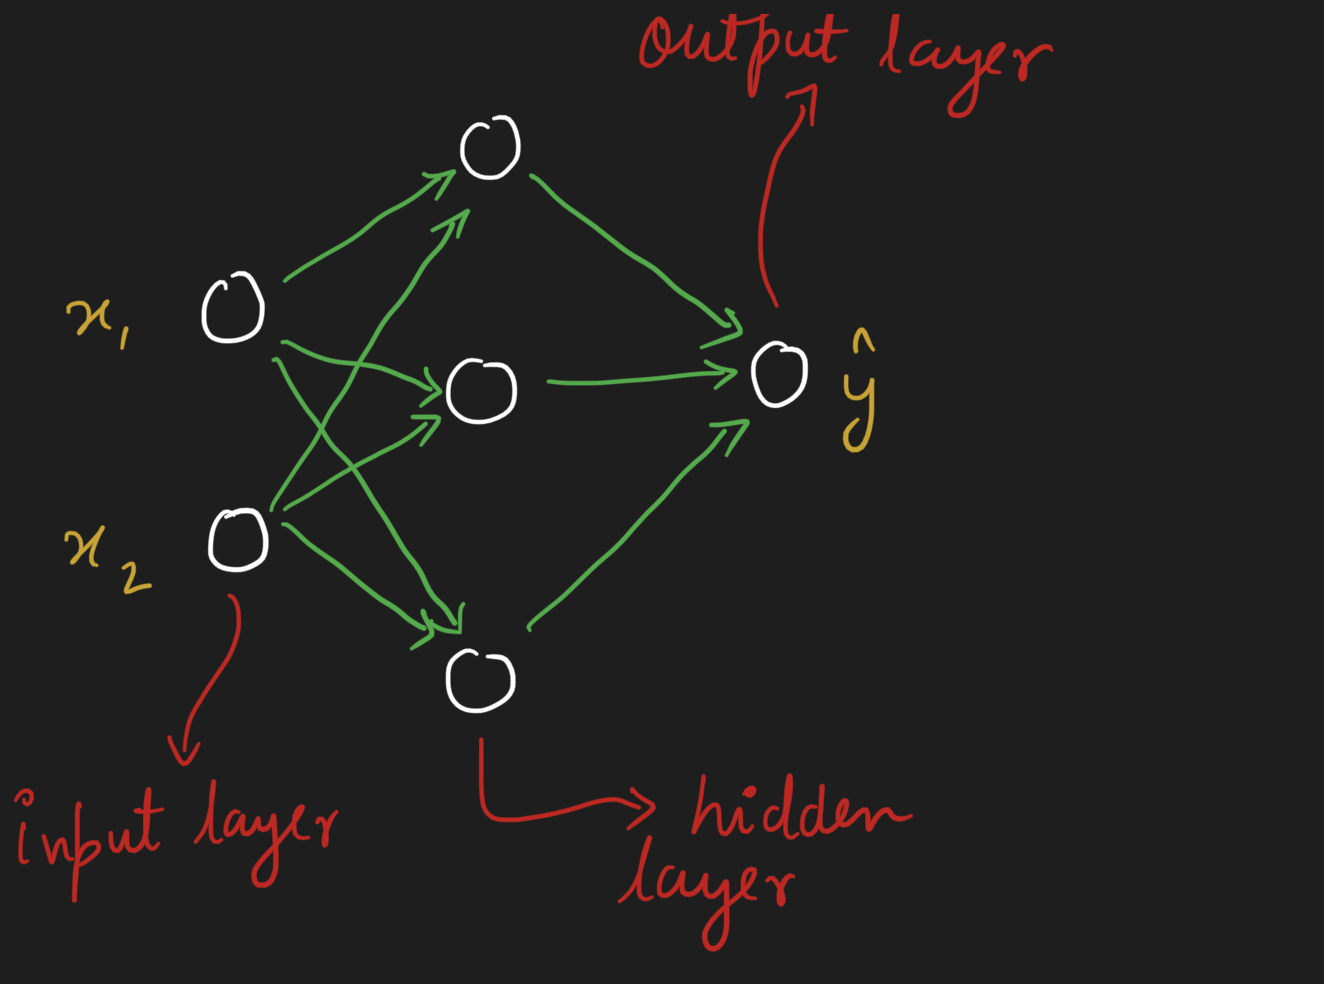 Output layer
x₁
ŷ
x₂
input layer
hidden
layer